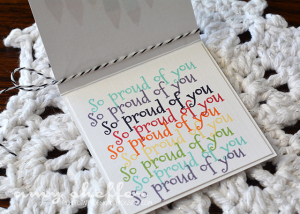 So proud of you
So proud of you
So proud of you
So proud of you
So proud of you
So proud of you
So proud of you
So proud of you
So proud of you